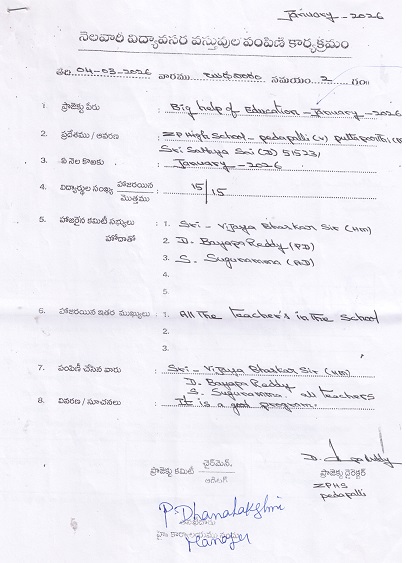 January - 2026
నెలవారీ విద్యావసర వస్తువుల పంపిణి కార్యక్రమం
తేది 04-03-2026 వారము బుధవారం సమయం 2 గం॥
1. ప్రాజెక్టు పేరు : Big help of Education - January - 2026
2. ప్రదేశము / ఆవరణ : ZP High School - pedapalli (V) puttaparthi (M)
Sri Sathya Sai (D) 51523
3. ఏ నెల కొఱకు : January - 2026
4. విద్యార్థుల సంఖ్య హాజరయిన / మొత్తము : 15/15
5. హాజరైన కమిటీ సభ్యులు : 1. Sri - Vijaya Bhaskar Sir (HM)
హోదాతో 2. D. Bayapa Reddy (PD)
3. S. Sugunamma (AD)
4.
5.
6. హాజరయిన ఇతర ముఖ్యులు : 1. All the teacher's in the School
2.
3.
7. పంపిణీ చేసిన వారు : Sri - Vijaya Bhaskar Sir (HM)
D. Bayapa Reddy
S. Sugunamma. all teachers
8. వివరణ / సూచనలు : It is a good program.
ప్రాజెక్టు కమిటీ ఛైర్మెన్,
ప్రాజెక్టు డైరెక్టర్
ZPHS
pedapalli
P. Dhanalakshmi
Manager